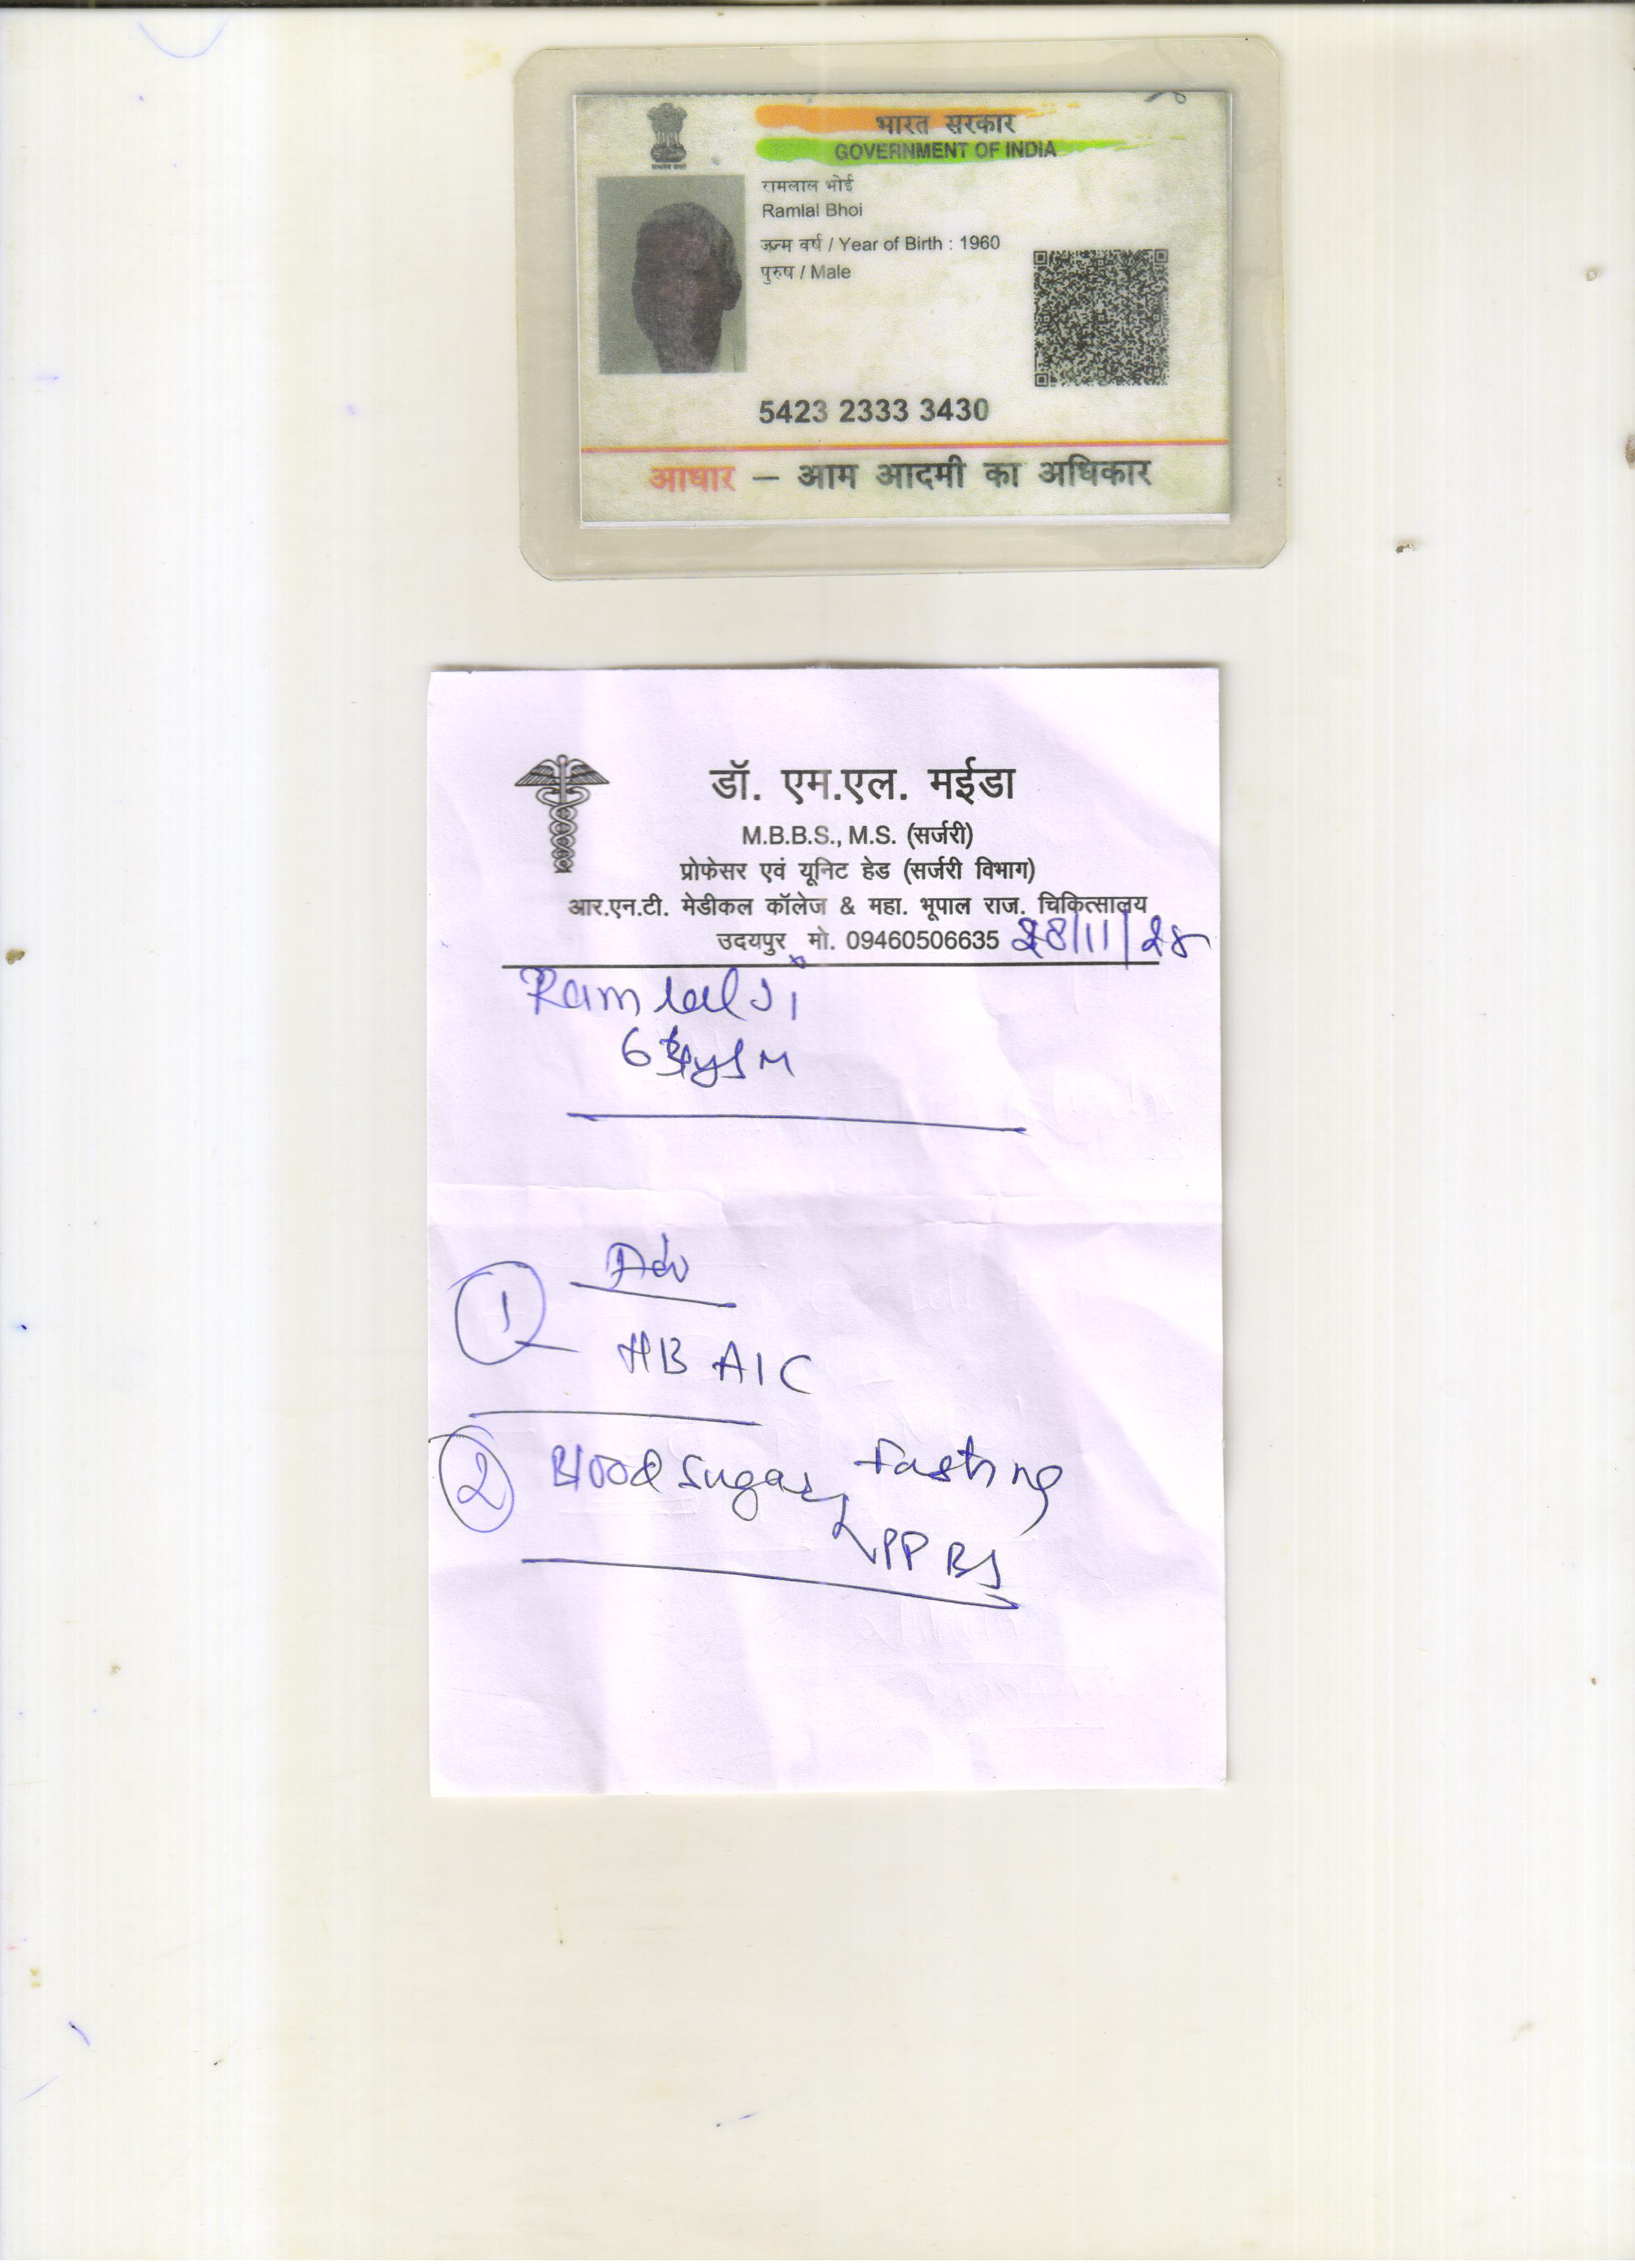 भारत सरकार
GOVERNMENT OF INDIA
रामलाल भोई
Ramlal Bhoi
जन्म वर्ष / Year of Birth : 1960
पुरुष / Male
5423 2333 3430
आधार – आम आदमी का अधिकार
डॉ. एम.एल. मईडा
M.B.B.S., M.S. (सर्जरी)
प्रोफेसर एवं यूनिट हेड (सर्जरी विभाग)
आर.एन.टी. मेडीकल कॉलेज & महा. भूपाल राज. चिकित्सालय
उदयपुर मो. 09460506635 28/11/
Ramlal Ji
M
Adv
1
HB A1C
2 Blood Sugar Fasting
PPBS